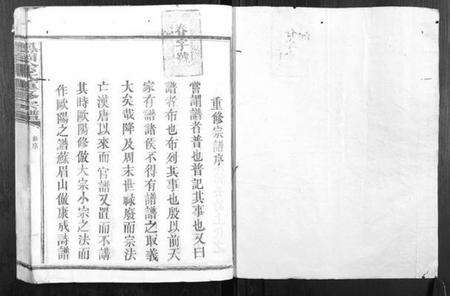 重修宗譜序
嘗謂譜者普也普記其事也又曰
譜者布也布列其事也殷以前天
家有譜諸侯不得有譜譜之取義
大矣哉降及周末世祿廢而宗法
亡漢唐以來而官譜又置而不講
其時歐陽修倣大宗小宗之法而
作歐陽之譜蘇眉山倣康成詩譜